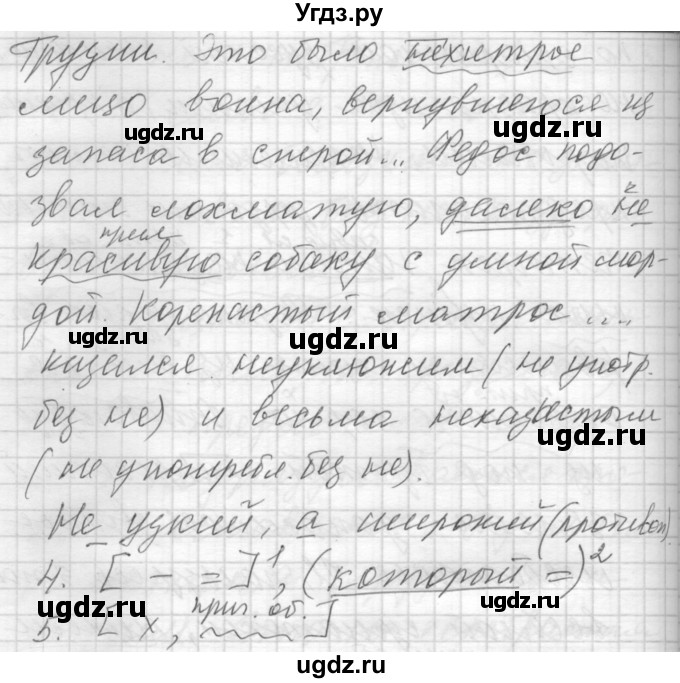 Угдз.ру
Грузии. Это было нехитрое
лицо воина, вернувшегося из
запаса в строй... Федос подо-
звал лохматую, далеко не
прил.
красивую собаку с умной мор-
дой. Коренастый матрос ....
казался неуклюжим (не употр.
без не) и весьма неказистым
(не употребл. без не).
Не узкий, а широкий (противоп.)
4. [ – = ]¹, (который =)²
прич. об.
5. [ х, ]
ugdz.ru ugdz.ru
ugdz.ru ugdz.ru
ugdz.ru ugdz.ru
ugdz.ru ugdz.ru
ugdz.ru ugdz.ru
ugdz.ru ugdz.ru
ugdz.ru